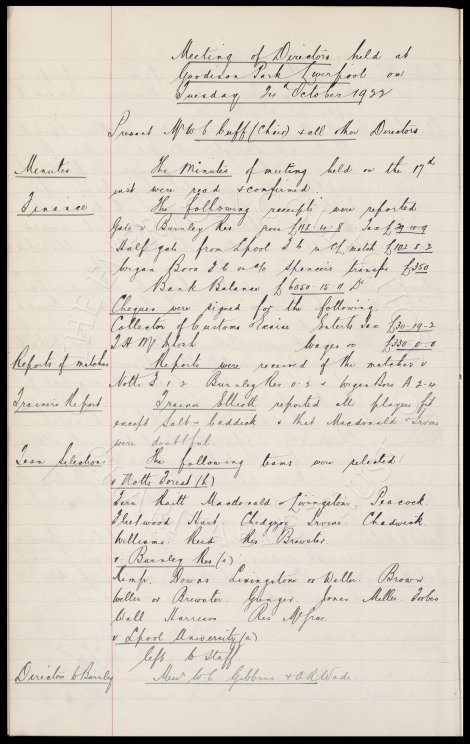 Meeting of Directors held at
Goodison Park Liverpool on
Tuesday 24th October 1922
Present Mr W C Cuff (Chair) & all other Directors
Minutes The Minutes of meeting held on the 17th
inst were read & confirmed.
Finance The following receipts were reported
Gate v Burnley Res £118.4.8 Tax £29.10.9
Half gate from Lpool F C re C/ match £102.8.2
Wigan Boro F C on a/c Spencer's transfer £350
Bank Balance £6050.15.11 Dr
Cheques were signed for the following
Collector of Customs & Excise Enterts Tax £30.19.2
T H McIntosh Wages a/c £330.0.0
Reports of matches Reports were received of the matches v
Notts F 1-2 Burnley Res 0-2 & Wigan Boro A 2-4
Trainers Report Trainer Elliott reported all players fit
except Salt & Caddick & that Macdonald & Irvine
were doubtful
Team Selection The following teams were selected
v Notts Forest (h)
Fern Raitt Macdonald or Livingstone. Peacock.
Fleetwood Hart. Chedgzoy Irvine Chadwick
Williams. Reid Res Brewster.
v. Burnley Res (a)
Kemp. Downs Livingstone or Weller. Brown
Weller or Brewster. Grenyer. Jones Miller. Forbes
Wall Harrison Res McGrae
v Lpool University (a)
left to Staff.
Directors to Burnley Messrs W C Gibbins & A R Wade.